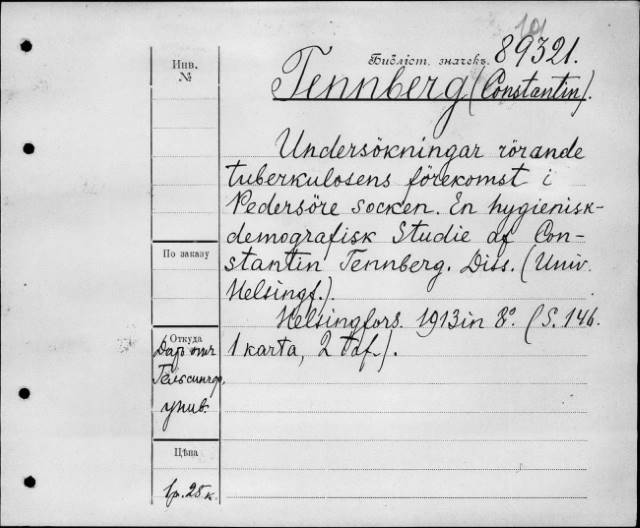 19
Библіот. значекъ. 89321.
Инв. №
Tennberg (Constantin).
Undersökningar rörande
tuberkulosens förekomst i
Pedersöre socken. En hygienisk-
demografisk Studie af Con-
stantin Tennberg. Diss. (Univ.
Helsingf.).
Helsingfors. 1913 in 8°. (S. 146.
1 karta, 2 taf.).
По заказу
Откуда
Даръ
Гельсингф.
унив.
Цѣна
1 р. 25 к.